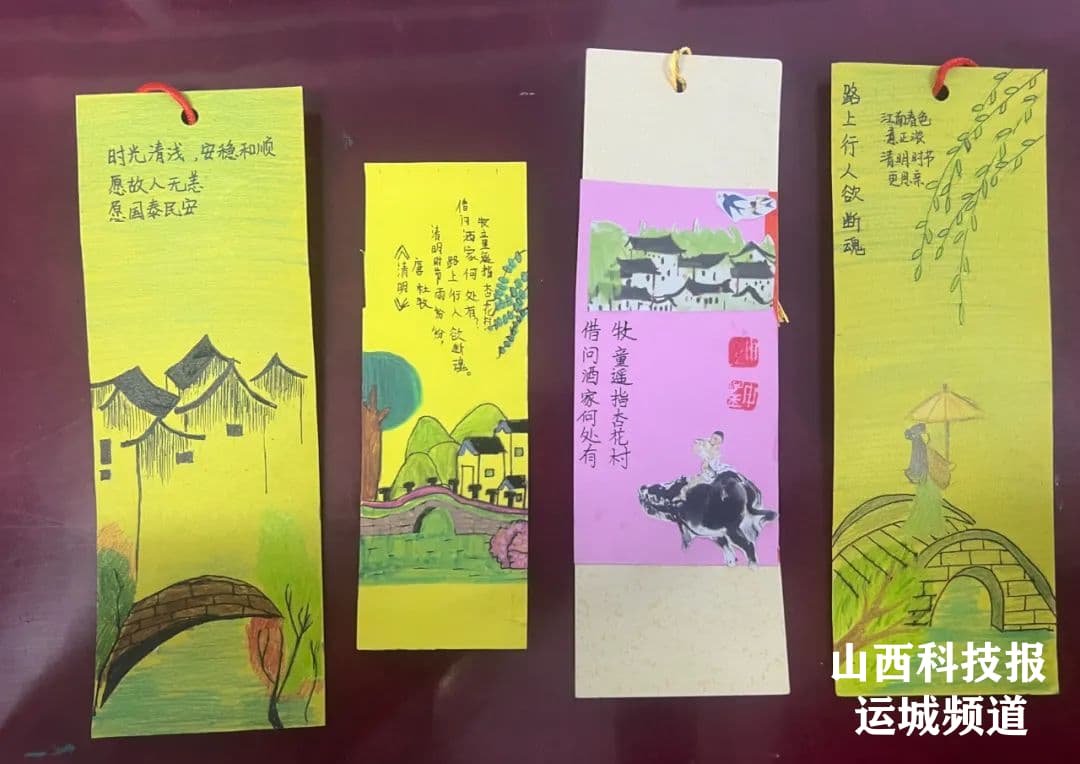 时光清浅,安稳和顺
愿故人无恙
愿国泰民安
《清明》
唐 杜牧
清明时节雨纷纷,
路上行人欲断魂。
借问酒家何处有?
牧童遥指杏花村
借问酒家何处有
牧童遥指杏花村
路上行人欲断魂
江南春色
意正浓
清明时节
更思亲
山西科技报
运城频道